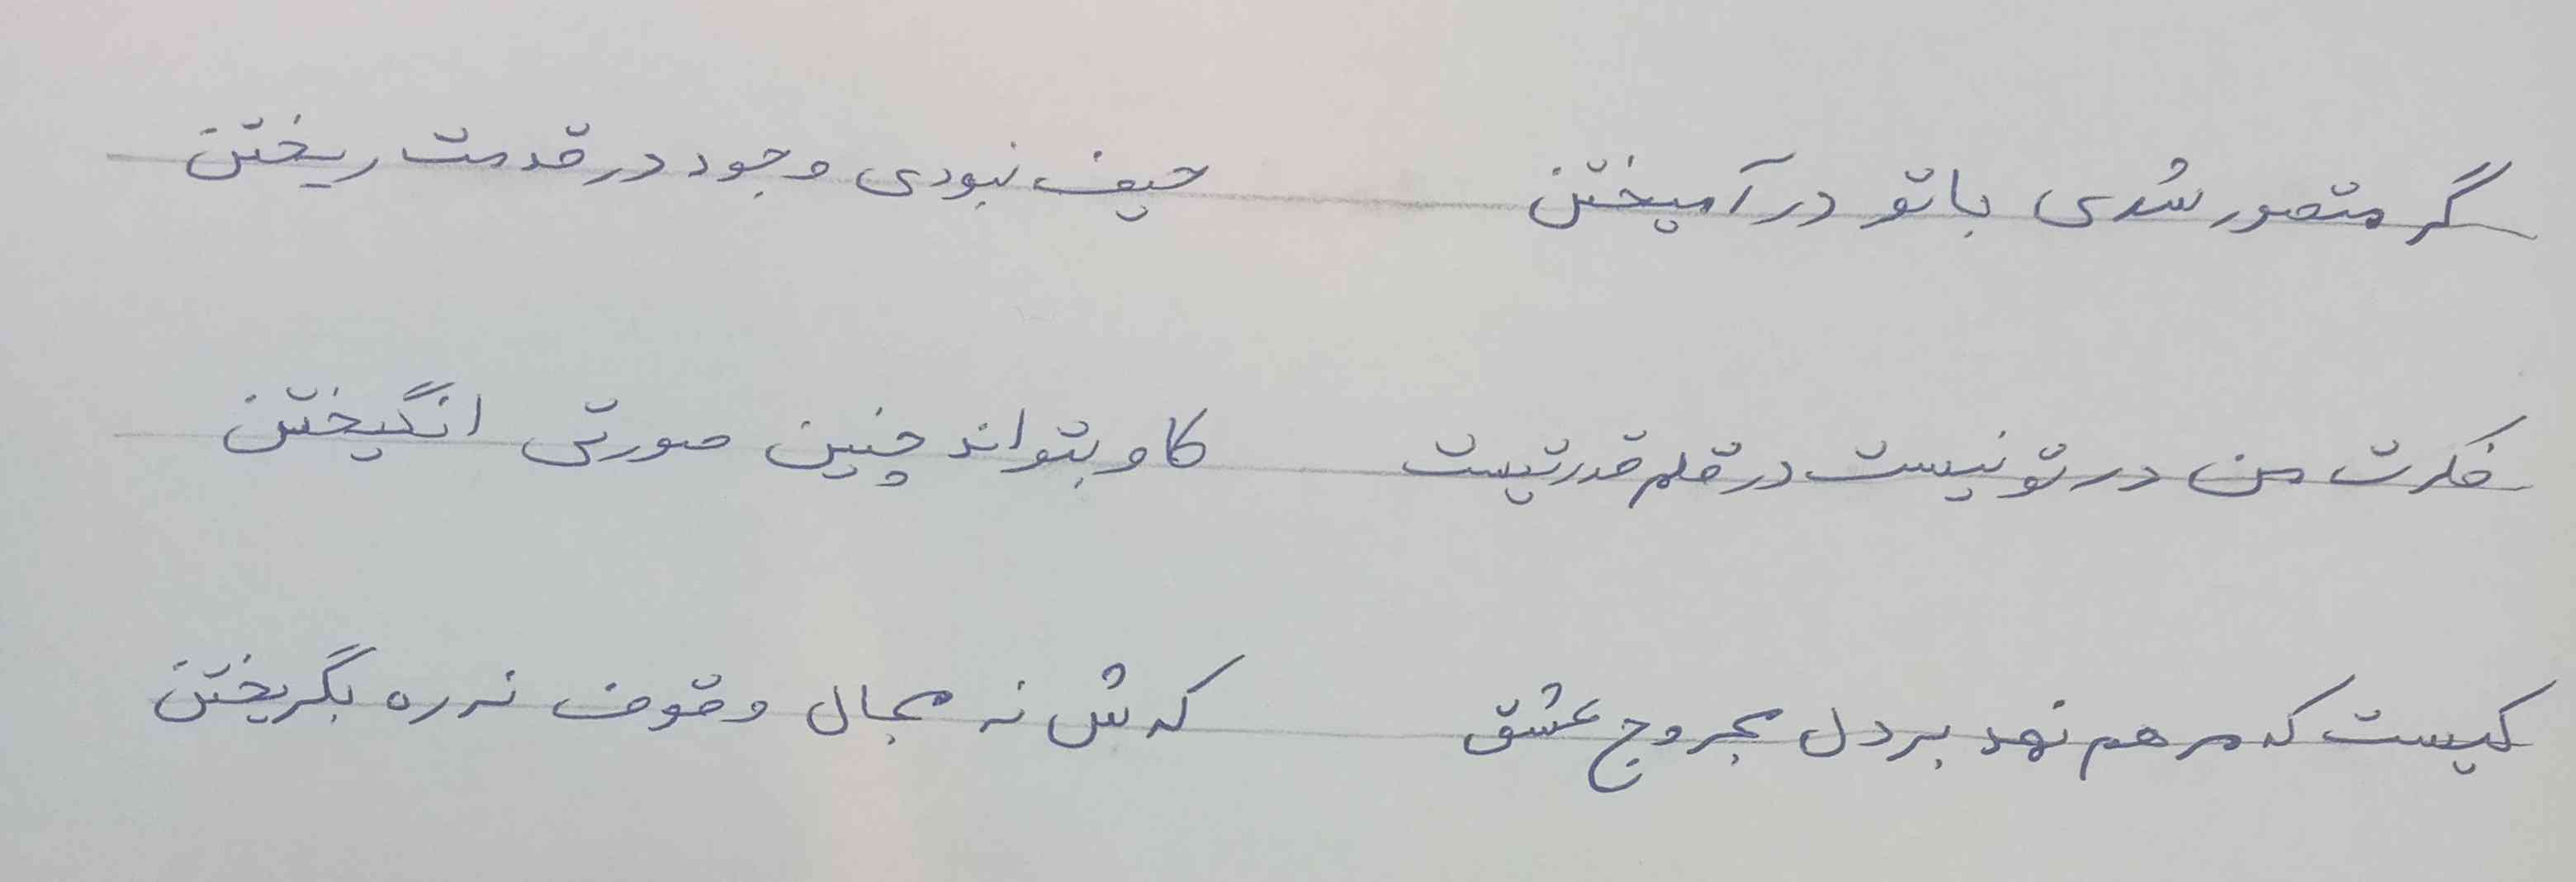 گر متصور شدی با تو در آمیختن حیف نبودی وجود در قدمت ریختن
فکرت من در تو نیست در قلم قدرتیست کاو بتواند چنین صورتی انگیختن
کیست که مرهم نهد بر دل مجروح عشق که‌ش نه مجال وقوف نه ره بگریختن